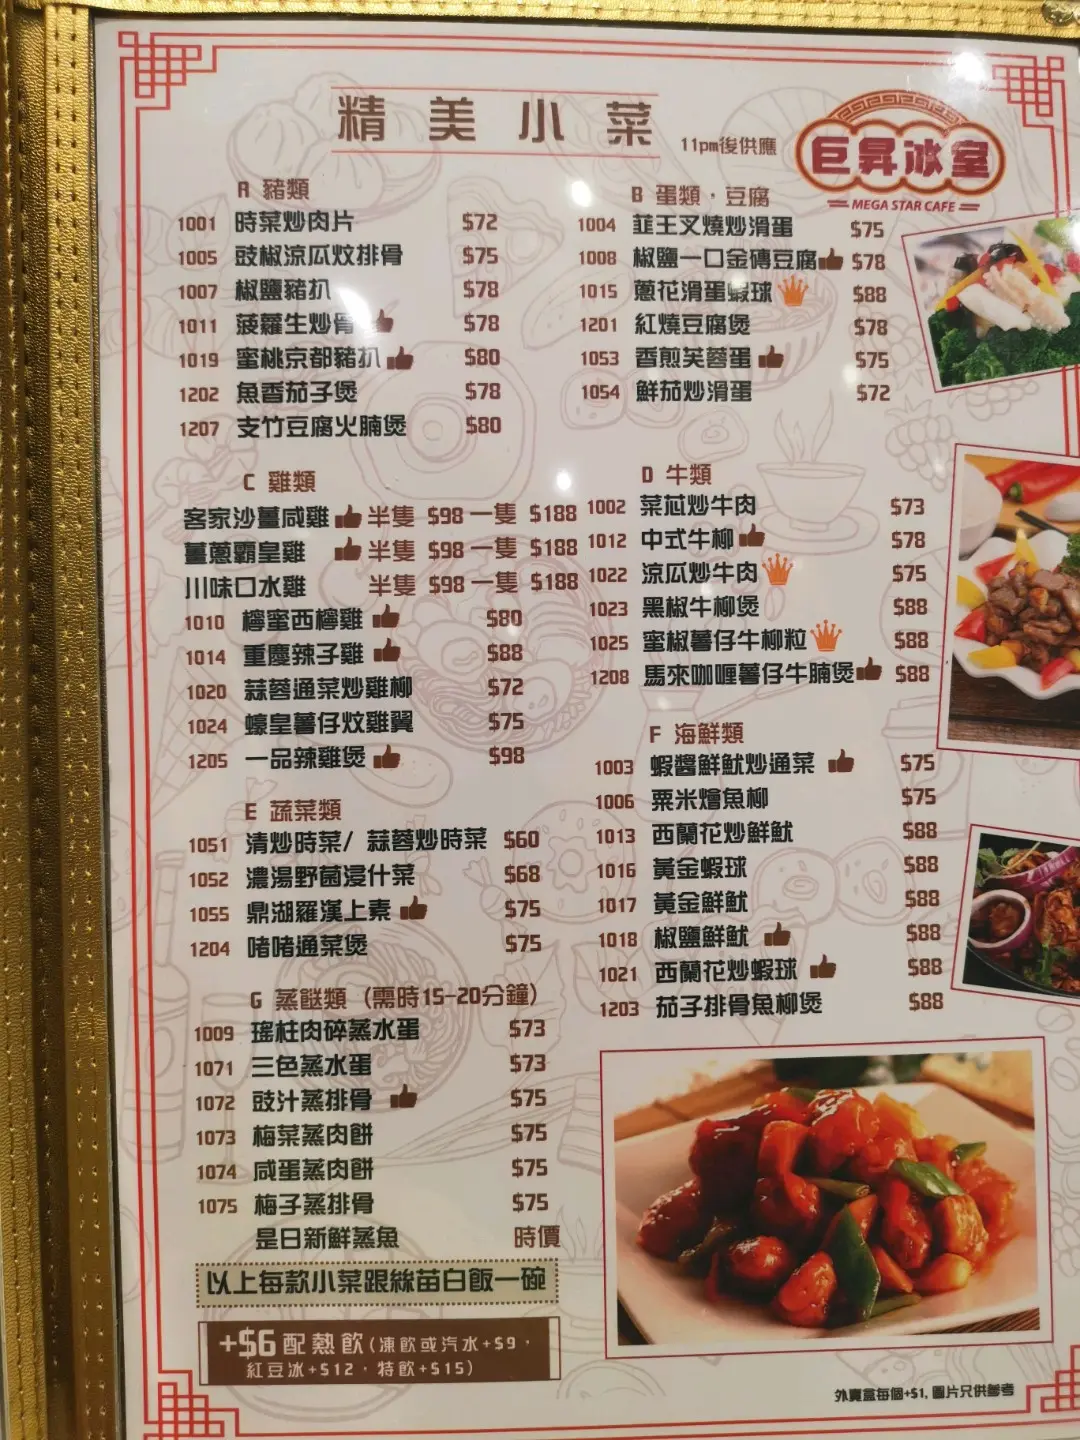 精美小菜 11pm後供應
巨昇冰室
MEGA STAR CAFE
A 豬類
1001 時菜炒肉片 $72
1005 豉椒涼瓜炆排骨 $75
1007 椒鹽豬扒 $78
1011 菠蘿生炒骨 $78
1019 蜜桃京都豬扒 $80
1202 魚香茄子煲 $78
1207 支竹豆腐火腩煲 $80
B 蛋類·豆腐
1004 韮王叉燒炒滑蛋 $75
1008 椒鹽一口金磚豆腐 $78
1015 蔥花滑蛋蝦球 $88
1201 紅燒豆腐煲 $78
1053 香煎芙蓉蛋 $75
1054 鮮茄炒滑蛋 $72
C 雞類
客家沙薑咸雞 半隻 $98 一隻 $188
薑蔥霸皇雞 半隻 $98 一隻 $188
川味口水雞 半隻 $98 一隻 $188
1010 檸蜜西檸雞 $80
1014 重慶辣子雞 $88
1020 蒜蓉通菜炒雞柳 $72
1024 蠔皇薯仔炆雞翼 $75
1205 一品辣雞煲 $98
D 牛類
1002 菜芯炒牛肉 $73
1012 中式牛柳 $78
1022 涼瓜炒牛肉 $75
1023 黑椒牛柳煲 $88
1025 蜜椒薯仔牛柳粒 $88
1208 馬來咖喱薯仔牛腩煲 $88
E 蔬菜類
1051 清炒時菜/ 蒜蓉炒時菜 $60
1052 濃湯野菌浸什菜 $68
1055 鼎湖羅漢上素 $75
1204 啫啫通菜煲 $75
F 海鮮類
1003 蝦醬鮮魷炒通菜 $75
1006 粟米燴魚柳 $75
1013 西蘭花炒鮮魷 $88
1016 黃金蝦球 $88
1017 黃金鮮魷 $88
1018 椒鹽鮮魷 $88
1021 西蘭花炒蝦球 $88
1203 茄子排骨魚柳煲 $88
G 蒸餸類 (需時15-20分鐘)
1009 瑤柱肉碎蒸水蛋 $73
1071 三色蒸水蛋 $73
1072 豉汁蒸排骨 $75
1073 梅菜蒸肉餅 $75
1074 咸蛋蒸肉餅 $75
1075 梅子蒸排骨 $75
是日新鮮蒸魚 時價
以上每款小菜跟絲苗白飯一碗
+$6 配熱飲(凍飲或汽水+$9，
紅豆冰+$12，特飲+$15)
外賣盒每個+$1, 圖片只供參考